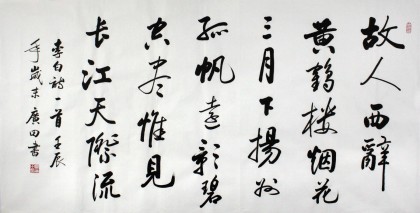 故人西辞
黄鹤楼烟花
三月下揚州
孤帆遠影碧
空尽惟見
長江天際流
李白詩一首壬辰
年歲末廣田書